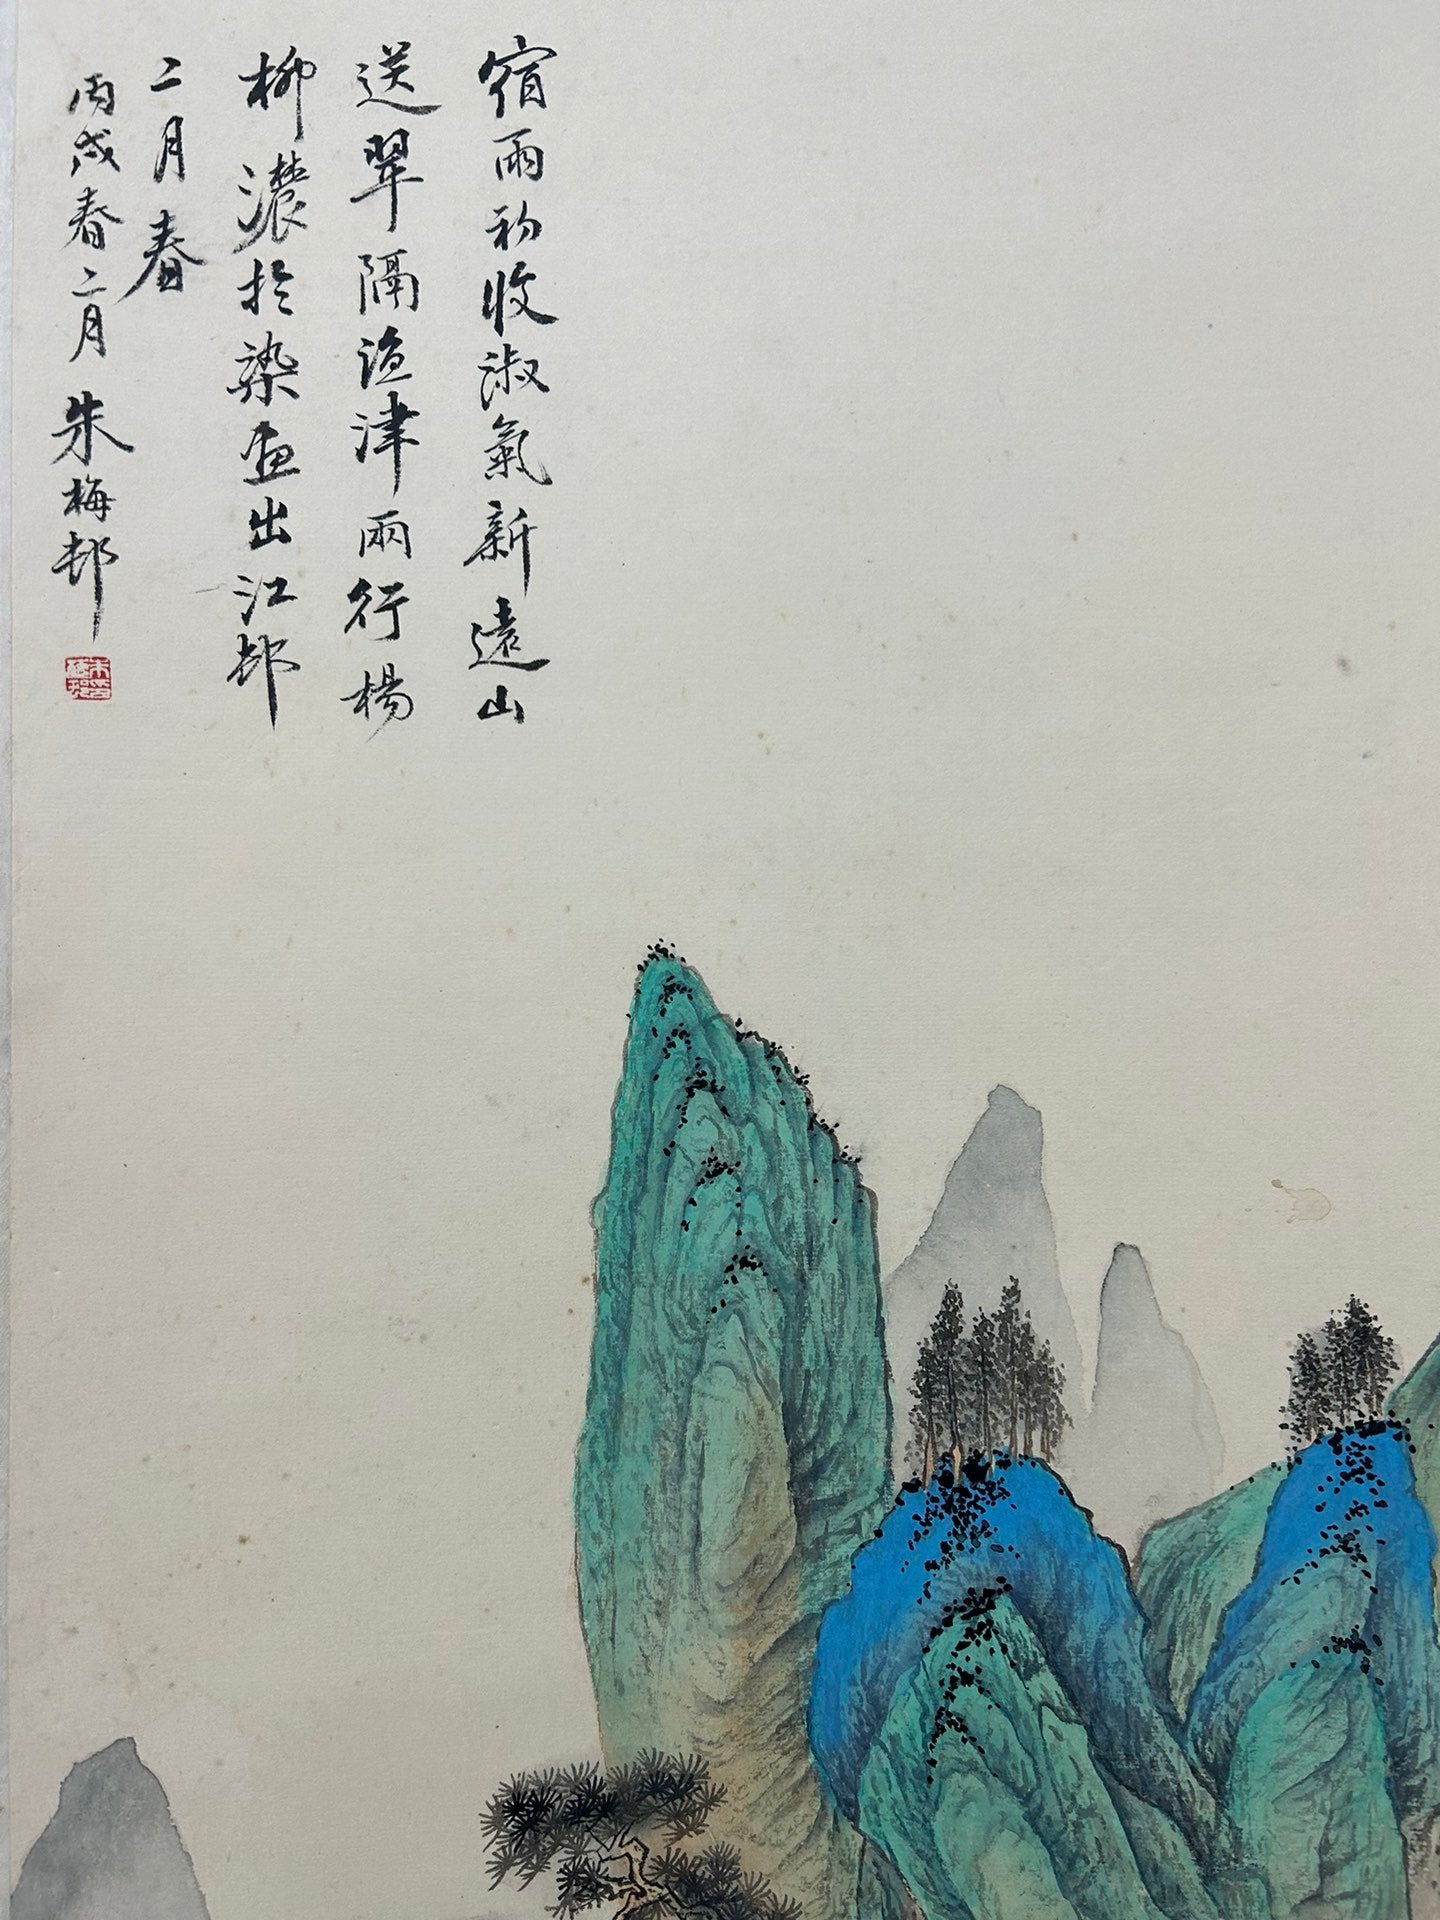 宿雨初收淑氣新遠山
送翠隔漁津兩行楊
柳濃於染畫出江邨
二月春
丙戌春二月朱梅邨